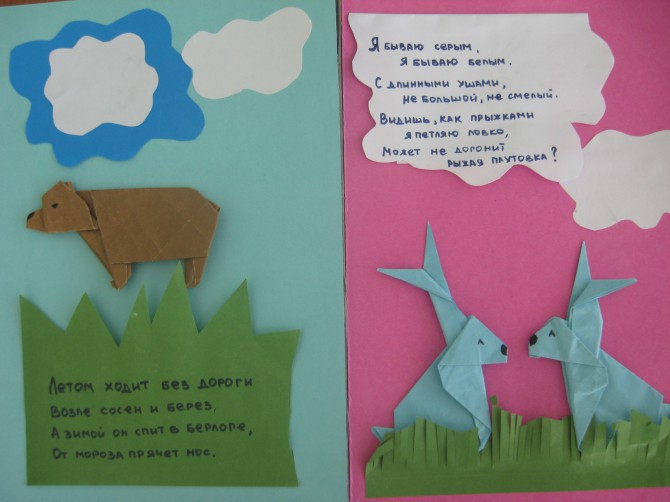 Летом ходит без дороги
Возле сосен и берез,
А зимой он спит в берлоге,
От мороза прячет нос.
Я бываю серым,
Я бываю белым.
С длинными ушами,
не большой, не смелый.
Видишь, как прыжками
я петляю ловко,
Может не догонит
рыжая плутовка?